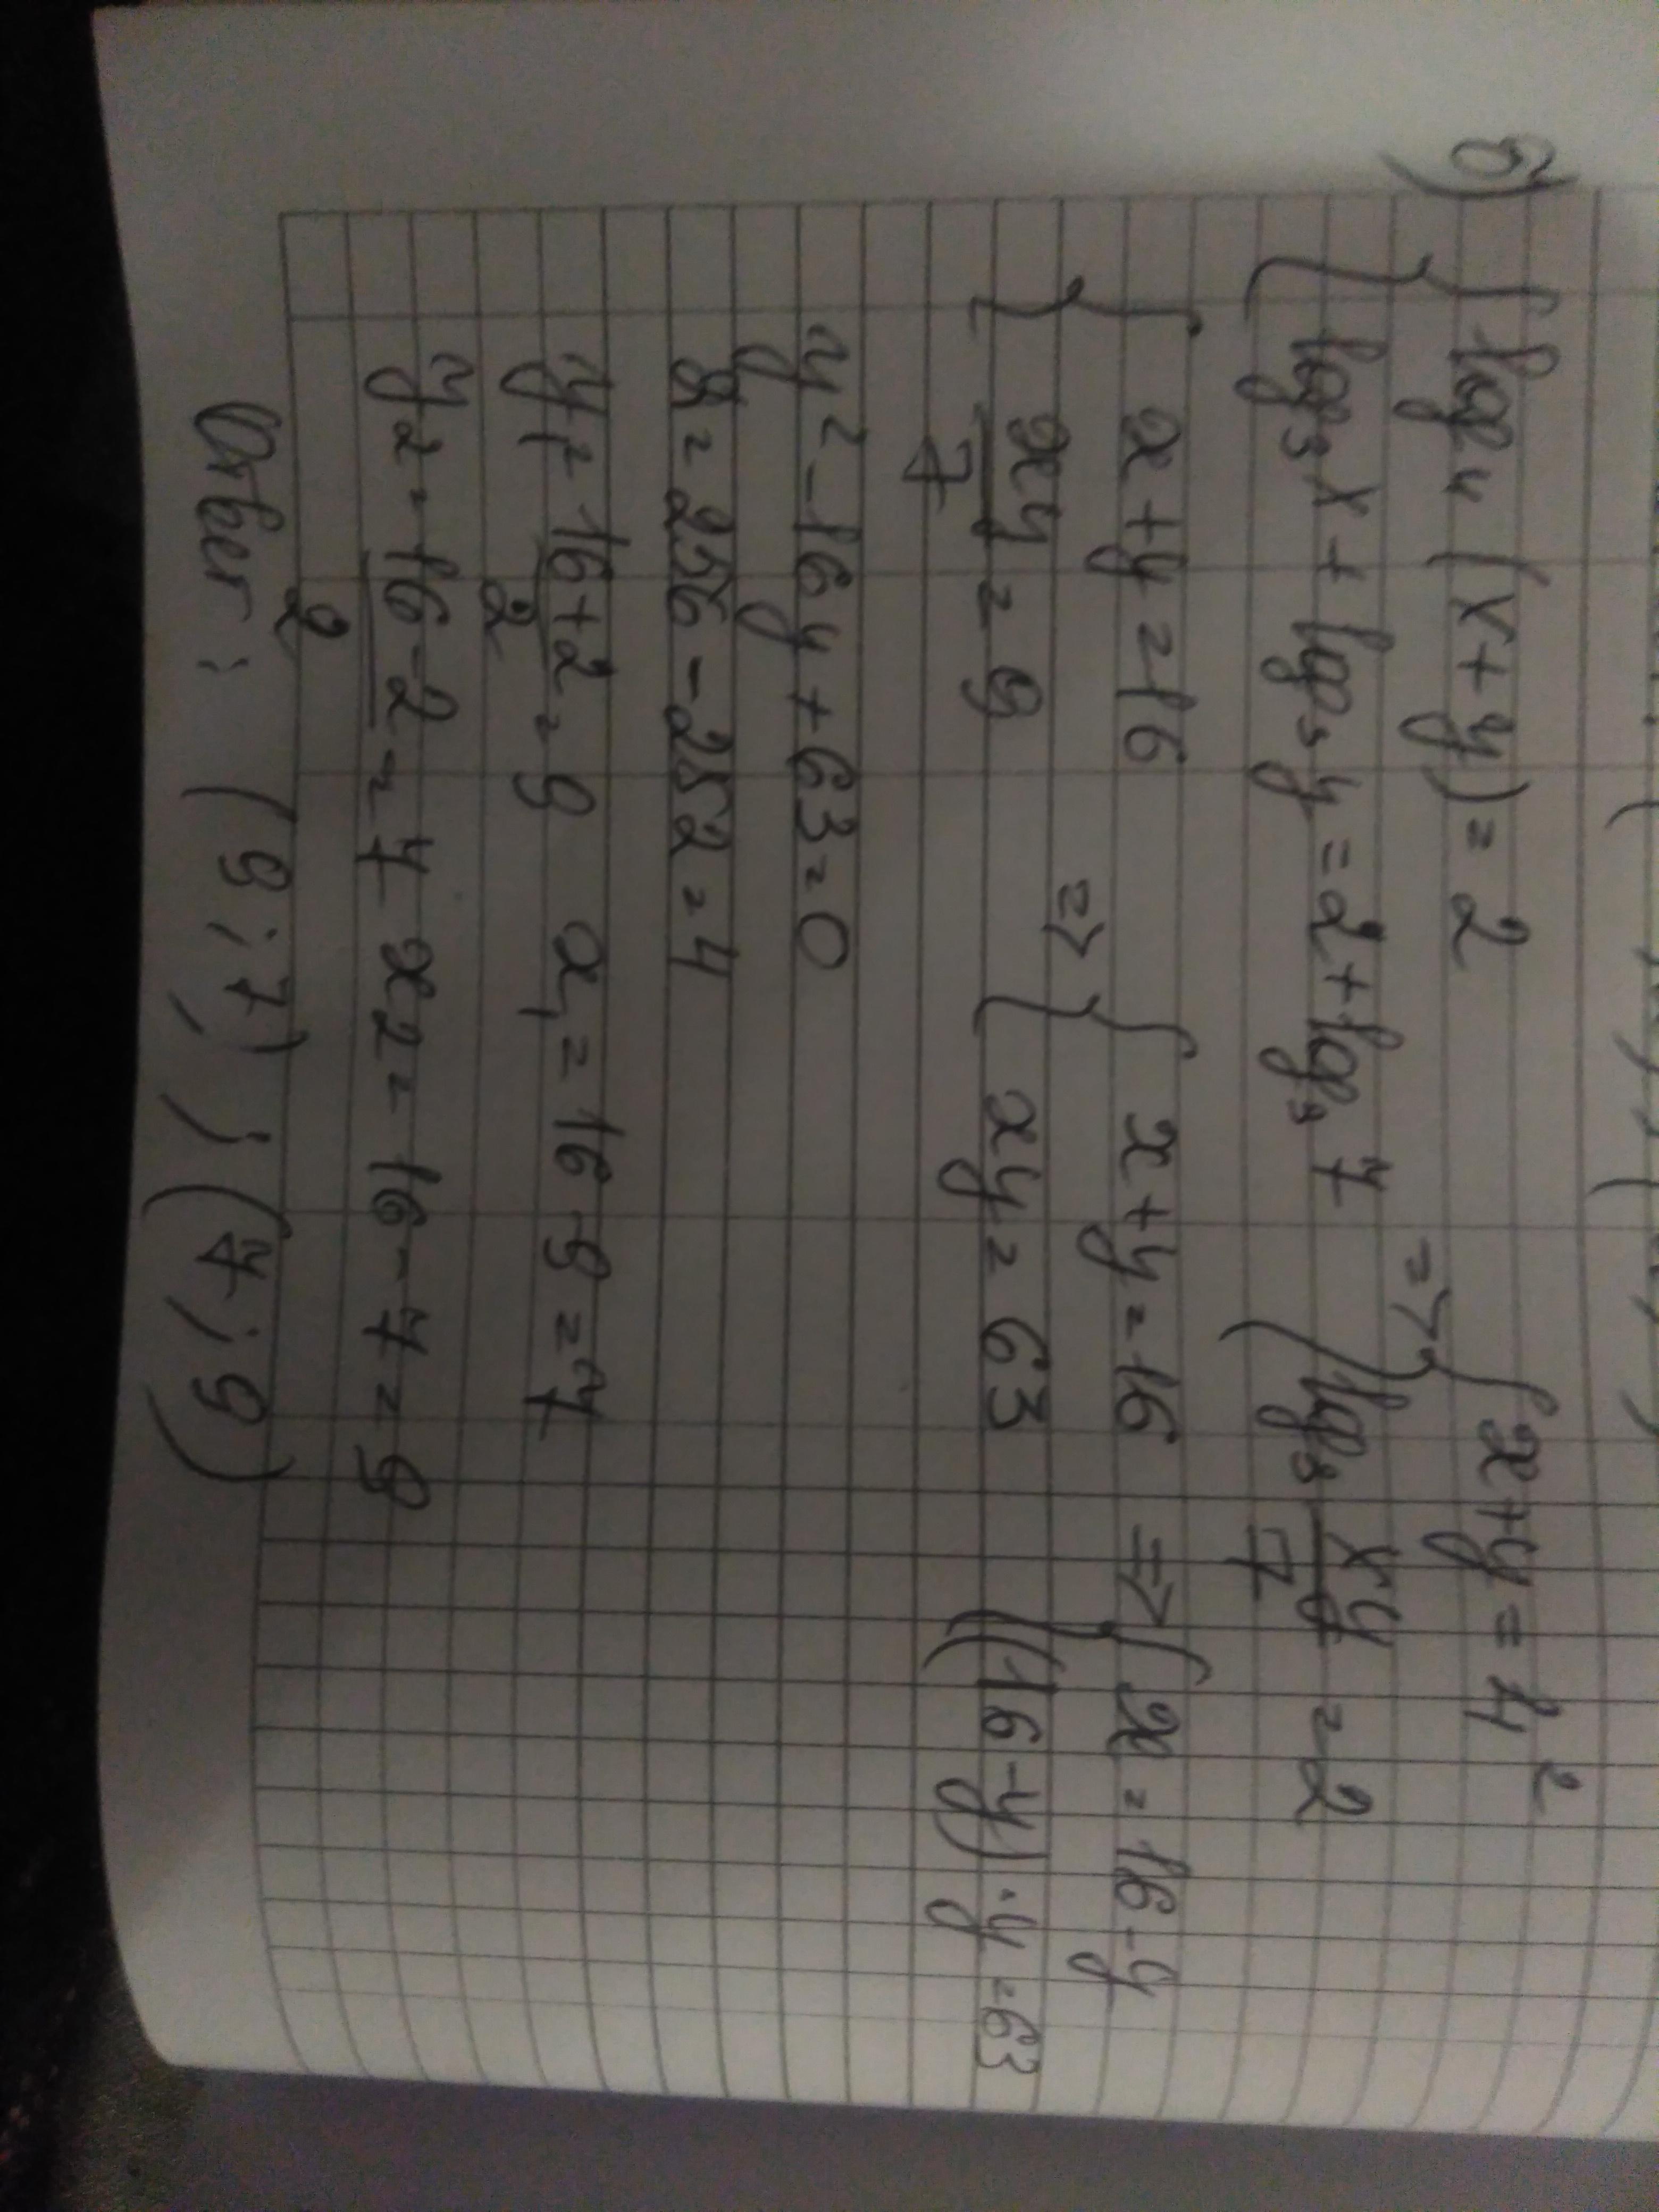 б) { log₄ (x+y) = 2 => { x+y = 4²
{ log₃x + log₃y = 2 + log₃7 { log₃ xy/7 = 2
{ x+y=16 => { x+y=16 => { x=16-y
{ xy/7 = 9 { xy = 63 { (16-y)·y=63
y²-16y+63=0
D = 256-252=4
y₁ = (16+2)/2 = 9 x₁ = 16-9=7
y₂ = (16-2)/2 = 7 x₂ = 16-7=9
Ответ: (9;7) ; (7;9)